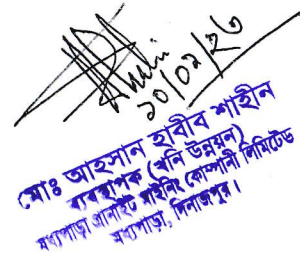 ২০/০২/২৩
মোঃ আহসান হাবীব শাহীন
ব্যবস্থাপক (খনি উন্নয়ন)
মধ্যপাড়া গ্রানাইট মাইনিং কোম্পানী লিমিটেড
মধ্যপাড়া, দিনাজপুর।